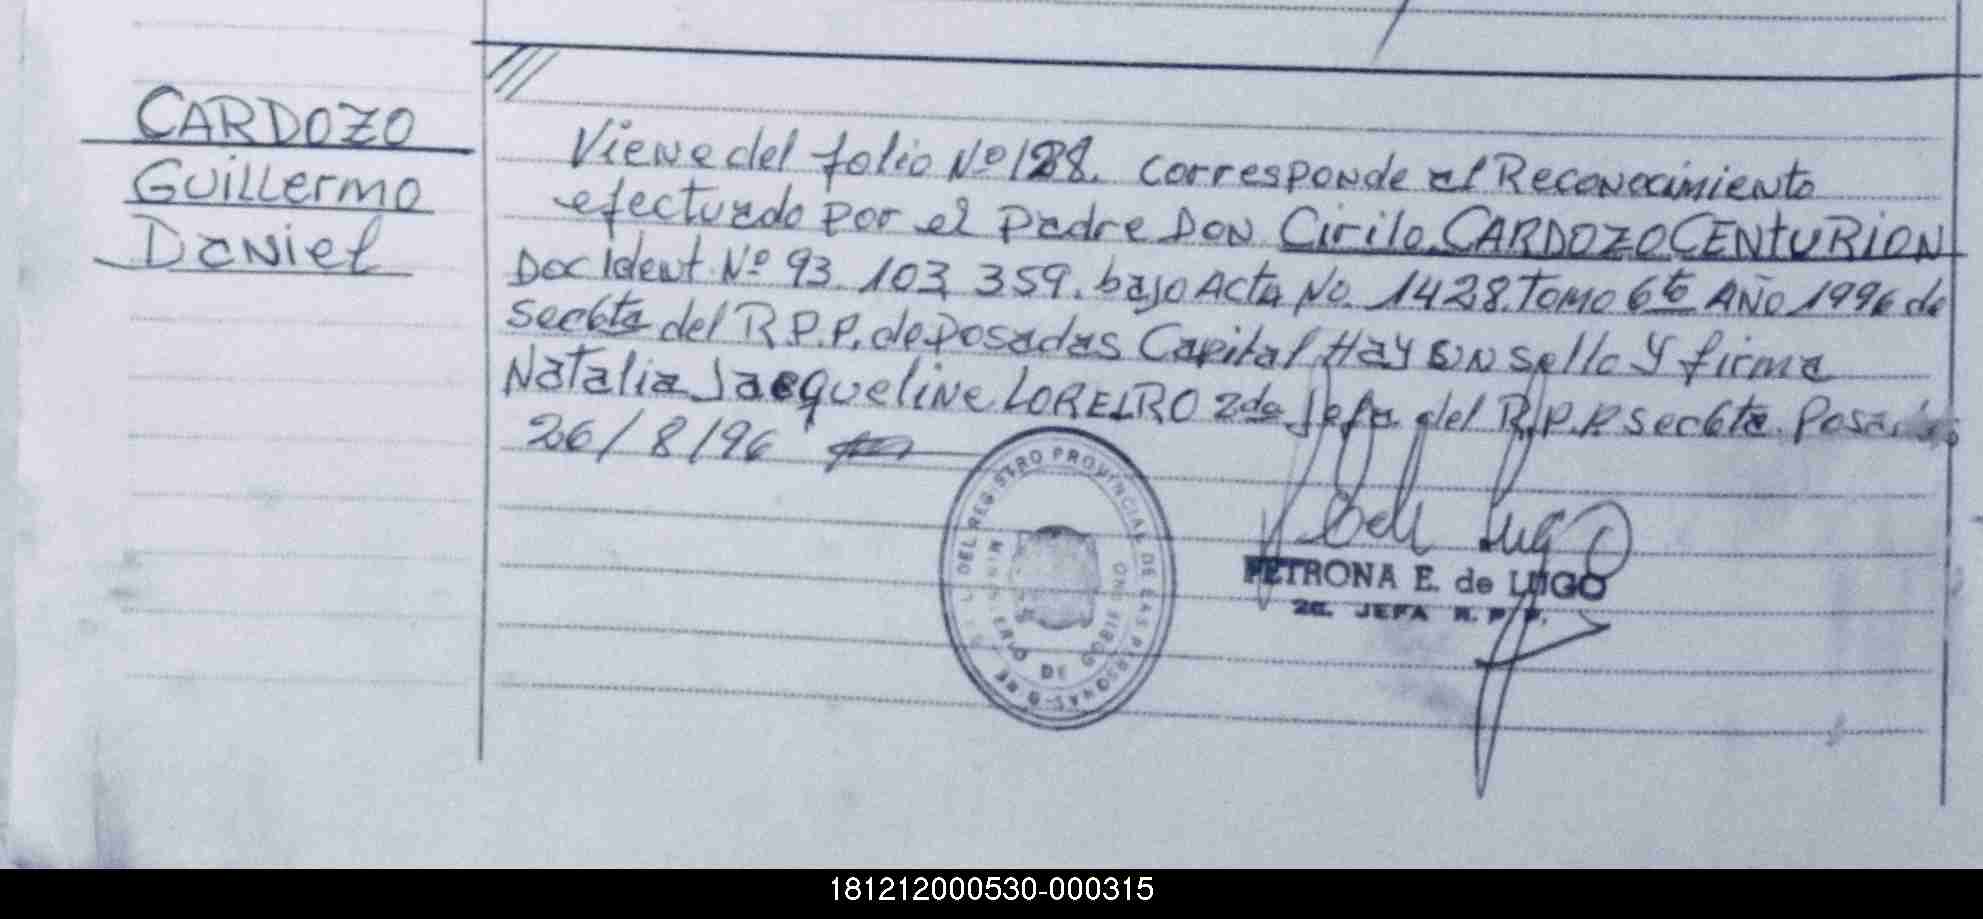 CARDOZO
Guillermo
Daniel
Viene del folio Nº 128. Corresponde al Reconocimiento
efectuado por el Padre Don Cirilo CARDOZO CENTURION
Doc ident. Nº 93.103.359. bajo Acta No. 1428. Tomo 6to Año 1996 de
Sec6ta del R.P.P. de Posadas Capital Hay un sello y firma
Natalia Jacqueline LOREIRO 2da Jefa del R.P.P. Sec6ta. Posadas
26/8/96
DEL REGISTRO PROVINCIAL DE LAS PERSONAS
MINISTERIO DE GOBIERNO
PETRONA E. de LUGO
2a. JEFA R. P. P.
181212000530-000315